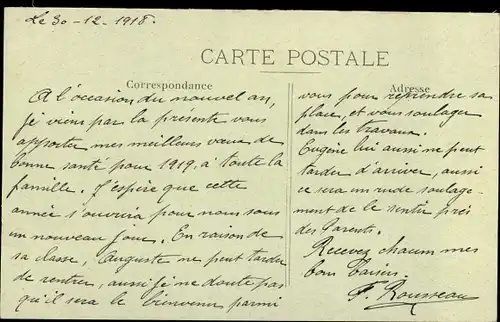 Le 30-12-1918.
CARTE POSTALE
Correspondance
A l'occasion du nouvel an,
je viens par la présente vous
apporter mes meilleurs vœux de
bonne santé pour 1919, à toute la
famille. J'espère que cette
année s'ouvrira pour nous sous
un nouveau jour. En raison de
sa classe, Auguste ne peut tarder
de rentrer, aussi je ne doute pas
qu'il sera le bienvenu parmi
Adresse
vous pour reprendre sa
place, et vous soulager
dans les travaux.
Eugène lui aussi ne peut
tarder d'arriver, aussi
ce sera un rude soulage-
ment de le sentir près
des Parents.
Recevez chacun mes
bons baisers.
F. Rousseau